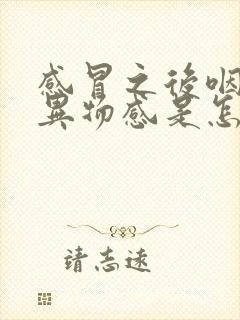 感冒之後咽
異物感是怎
請志遠